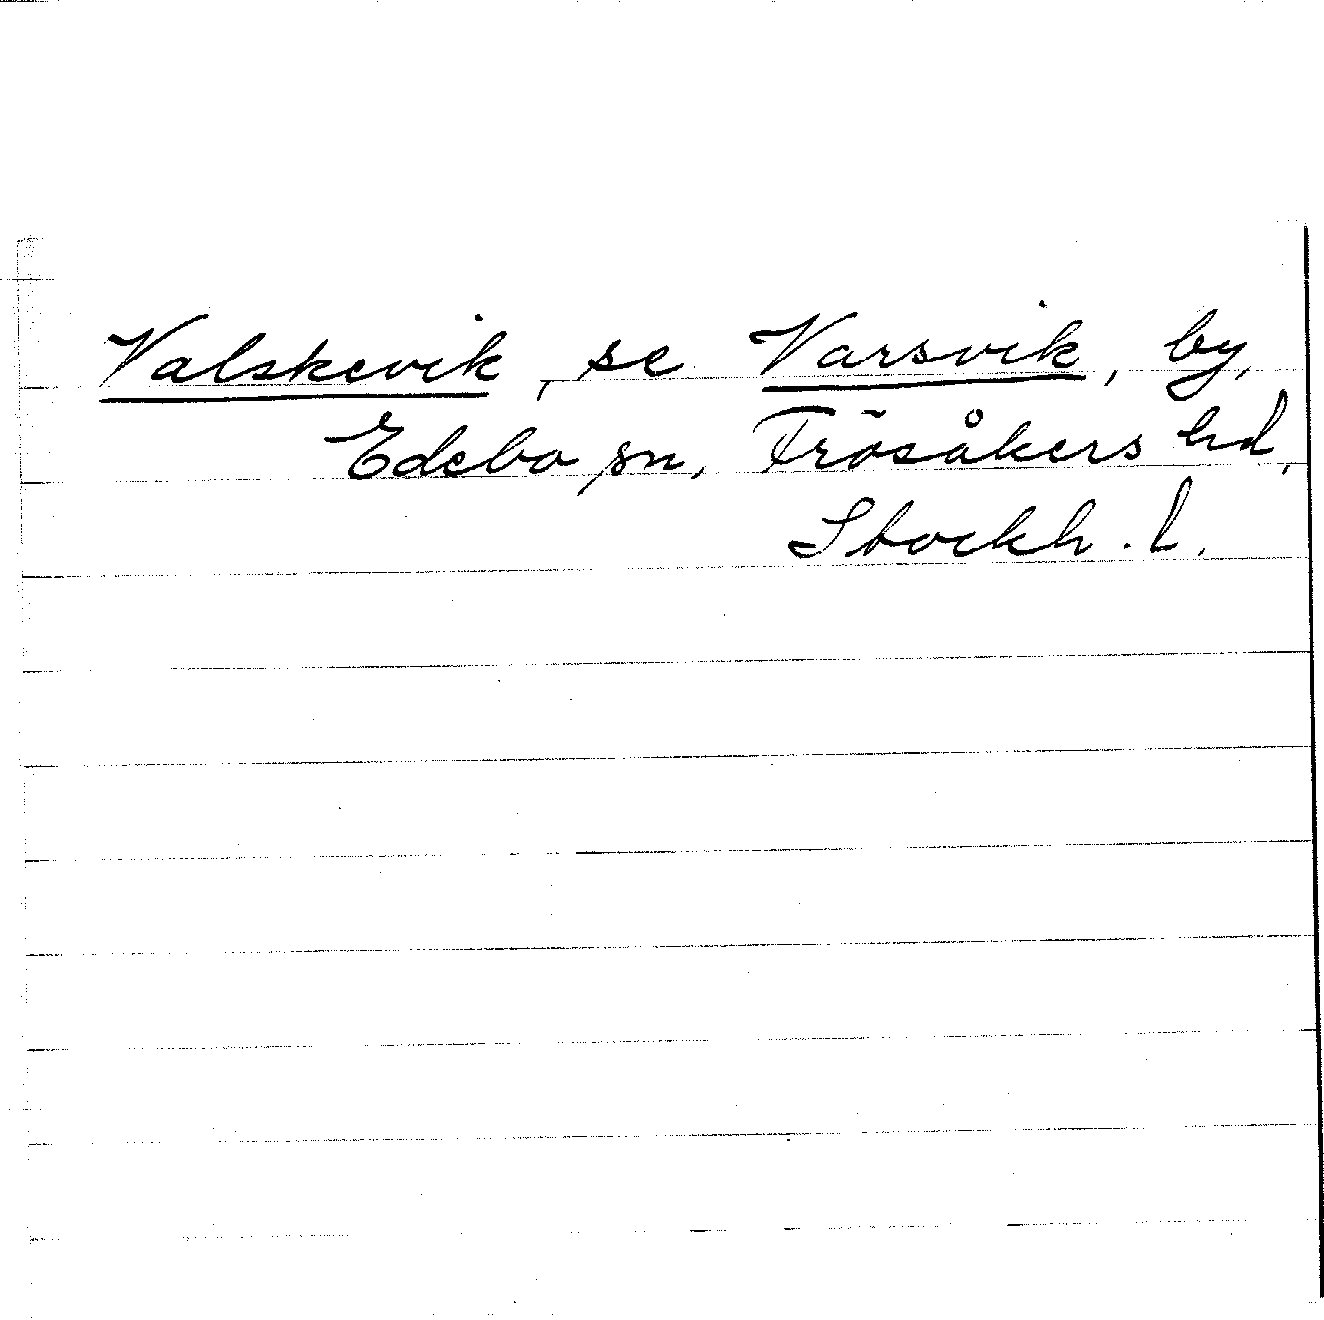 Valskevik, se Varsvik, by,
Edebo sn, Frösåkers hd,
Stockh. l.